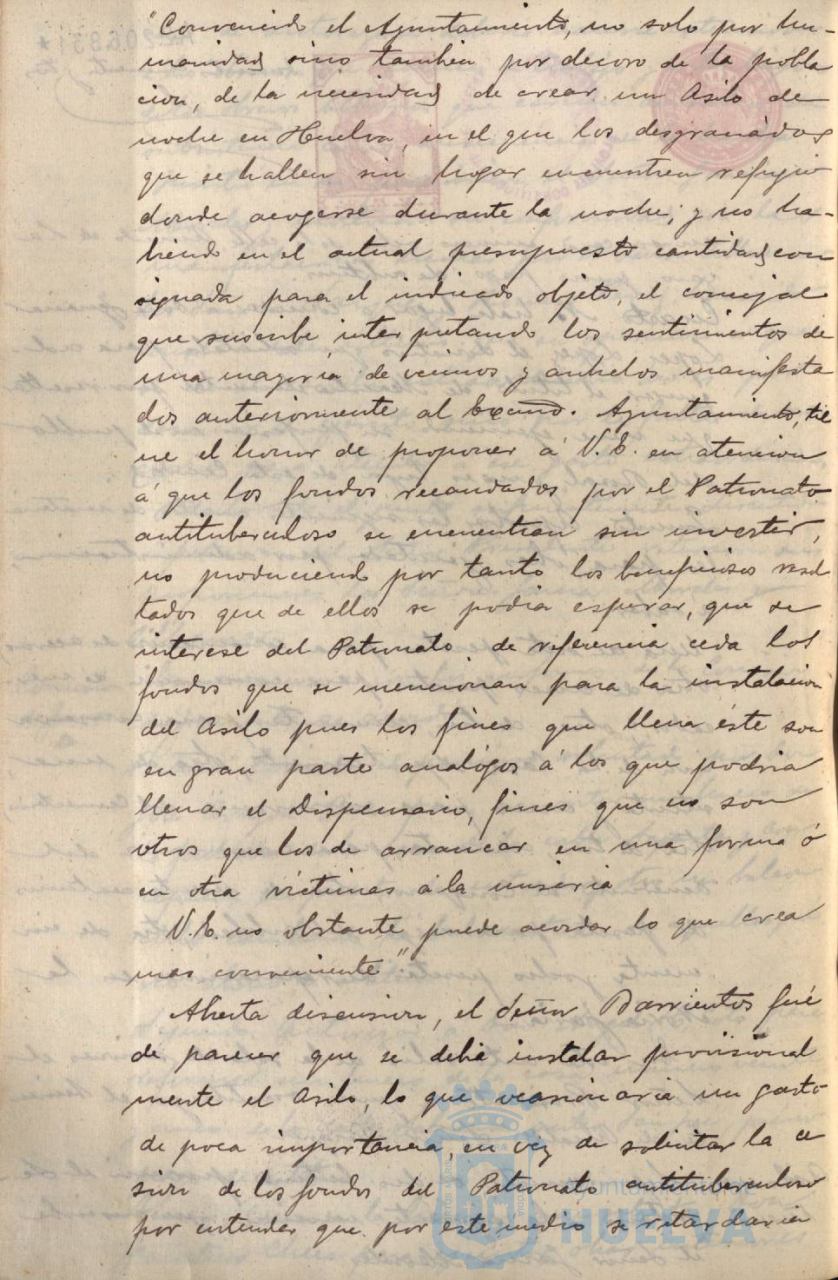 "Convencido el Ayuntamiento, no solo por hu-
manidad sino tambien por decoro de la pobla
cion, de la necesidad de crear un Asilo de
noche en Huelva, en el que los desgraciados
que se hallen sin hogar encuentren refugio
donde acogerse durante la noche; y no ha-
biendo en el actual presupuesto cantidad con
signada para el indicado objeto, el concejal
que suscribe interpretando los sentimientos de
una mayoria de vecinos y anhelos manifesta
dos anteriormente al Excmo. Ayuntamiento, tie
ne el honor de proponer á V.E. en atencion
á que los fondos recaudados por el Patronato
antituberculoso se encuentran sin invertir,
no produciendo por tanto los beneficiosos resul
tados que de ellos se podia esperar, que se
interese del Patronato de referencia ceda los
fondos que se mencionan para la instalacion
del Asilo pues los fines que llena éste son
en gran parte analógos á los que podria
llenar el Dispensario, fines que no son
otros que los de arrancar en una forma ó
en otra víctimas á la miseria
V.E. no obstante puede acordar lo que crea
mas conveniente".
Abierta discusion, el Señor Barrientos fué
de parecer que se debia instalar provisional
mente el Asilo, lo que ocasionaria un gasto
de poca importancia, en vez de solicitar la ce
sion de los fondos del Patronato antituberculoso
por entender que por este medio se retardaria
HUELVA